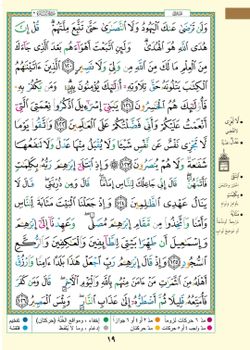 وَلَن تَرْضَىٰ عَنكَ ٱلْيَهُودُ وَلَا ٱلنَّصَٰرَىٰ حَتَّىٰ تَتَّبِعَ مِلَّتَهُمْ ۗ قُلْ إِنَّ
هُدَى ٱللَّهِ هُوَ ٱلْهُدَىٰ ۗ وَلَئِنِ ٱتَّبَعْتَ أَهْوَآءَهُم بَعْدَ ٱلَّذِى جَآءَكَ
مِنَ ٱلْعِلْمِ ۙ مَا لَكَ مِنَ ٱللَّهِ مِن وَلِىٍّ وَلَا نَصِيرٍ ١٢٠ ٱلَّذِينَ ءَاتَيْنَٰهُمُ
ٱلْكِتَٰبَ يَتْلُونَهُۥ حَقَّ تِلَاوَتِهِۦٓ أُو۟لَٰٓئِكَ يُؤْمِنُونَ بِهِۦ ۗ وَمَن يَكْفُرْ بِهِۦ
فَأُو۟لَٰٓئِكَ هُمُ ٱلْخَٰسِرُونَ ١٢١ يَٰبَنِىٓ إِسْرَٰٓءِيلَ ٱذْكُرُوا۟ نِعْمَتِىَ ٱلَّتِىٓ
أَنْعَمْتُ عَلَيْكُمْ وَأَنِّى فَضَّلْتُكُمْ عَلَى ٱلْعَٰلَمِينَ ١٢٢ وَٱتَّقُوا۟ يَوْمًا
لَّا تَجْزِى نَفْسٌ عَن نَّفْسٍ شَيْـًٔا وَلَا يُقْبَلُ مِنْهَا عَدْلٌ وَلَا تَنفَعُهَا
شَفَٰعَةٌ وَلَا هُمْ يُنصَرُونَ ١٢٣ وَإِذِ ٱبْتَلَىٰٓ إِبْرَٰهِۦمَ رَبُّهُۥ بِكَلِمَٰتٍ
فَأَتَمَّهُنَّ ۖ قَالَ إِنِّى جَاعِلُكَ لِلنَّاسِ إِمَامًا ۖ قَالَ وَمِن ذُرِّيَّتِى ۖ قَالَ لَا
يَنَالُ عَهْدِى ٱلظَّٰلِمِينَ ١٢٤ وَإِذْ جَعَلْنَا ٱلْبَيْتَ مَثَابَةً لِّلنَّاسِ
وَأَمْنًا وَٱتَّخِذُوا۟ مِن مَّقَامِ إِبْرَٰهِۦمَ مُصَلًّى ۖ وَعَهِدْنَآ إِلَىٰٓ إِبْرَٰهِۦمَ
وَإِسْمَٰعِيلَ أَن طَهِّرَا بَيْتِىَ لِلطَّآئِفِينَ وَٱلْعَٰكِفِينَ وَٱلرُّكَّعِ
ٱلسُّجُودِ ١٢٥ وَإِذْ قَالَ إِبْرَٰهِۦمُ رَبِّ ٱجْعَلْ هَٰذَا بَلَدًا ءَامِنًا وَٱرْزُقْ
أَهْلَهُۥ مِنَ ٱلثَّمَرَٰتِ مَنْ ءَامَنَ مِنْهُم بِٱللَّهِ وَٱلْيَوْمِ ٱلْءَاخِرِ ۖ قَالَ وَمَن كَفَرَ
فَأُمَتِّعُهُۥ قَلِيلًا ثُمَّ أَضْطَرُّهُۥٓ إِلَىٰ عَذَابِ ٱلنَّارِ ۖ وَبِئْسَ ٱلْمَصِيرُ ١٢٦
١٩